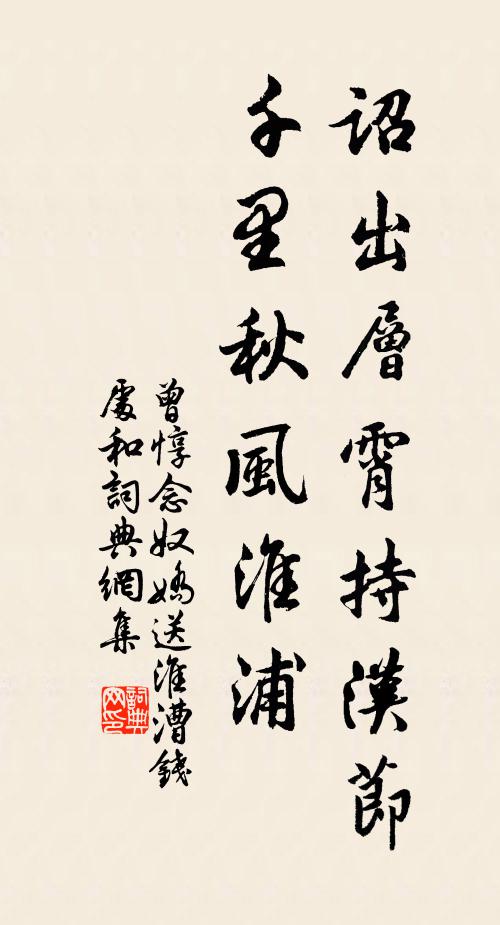 詔出層霄持漢節
千里秋風淮浦
曾惇念奴嬌送淮漕錢
處和詞典網集
詞典網印